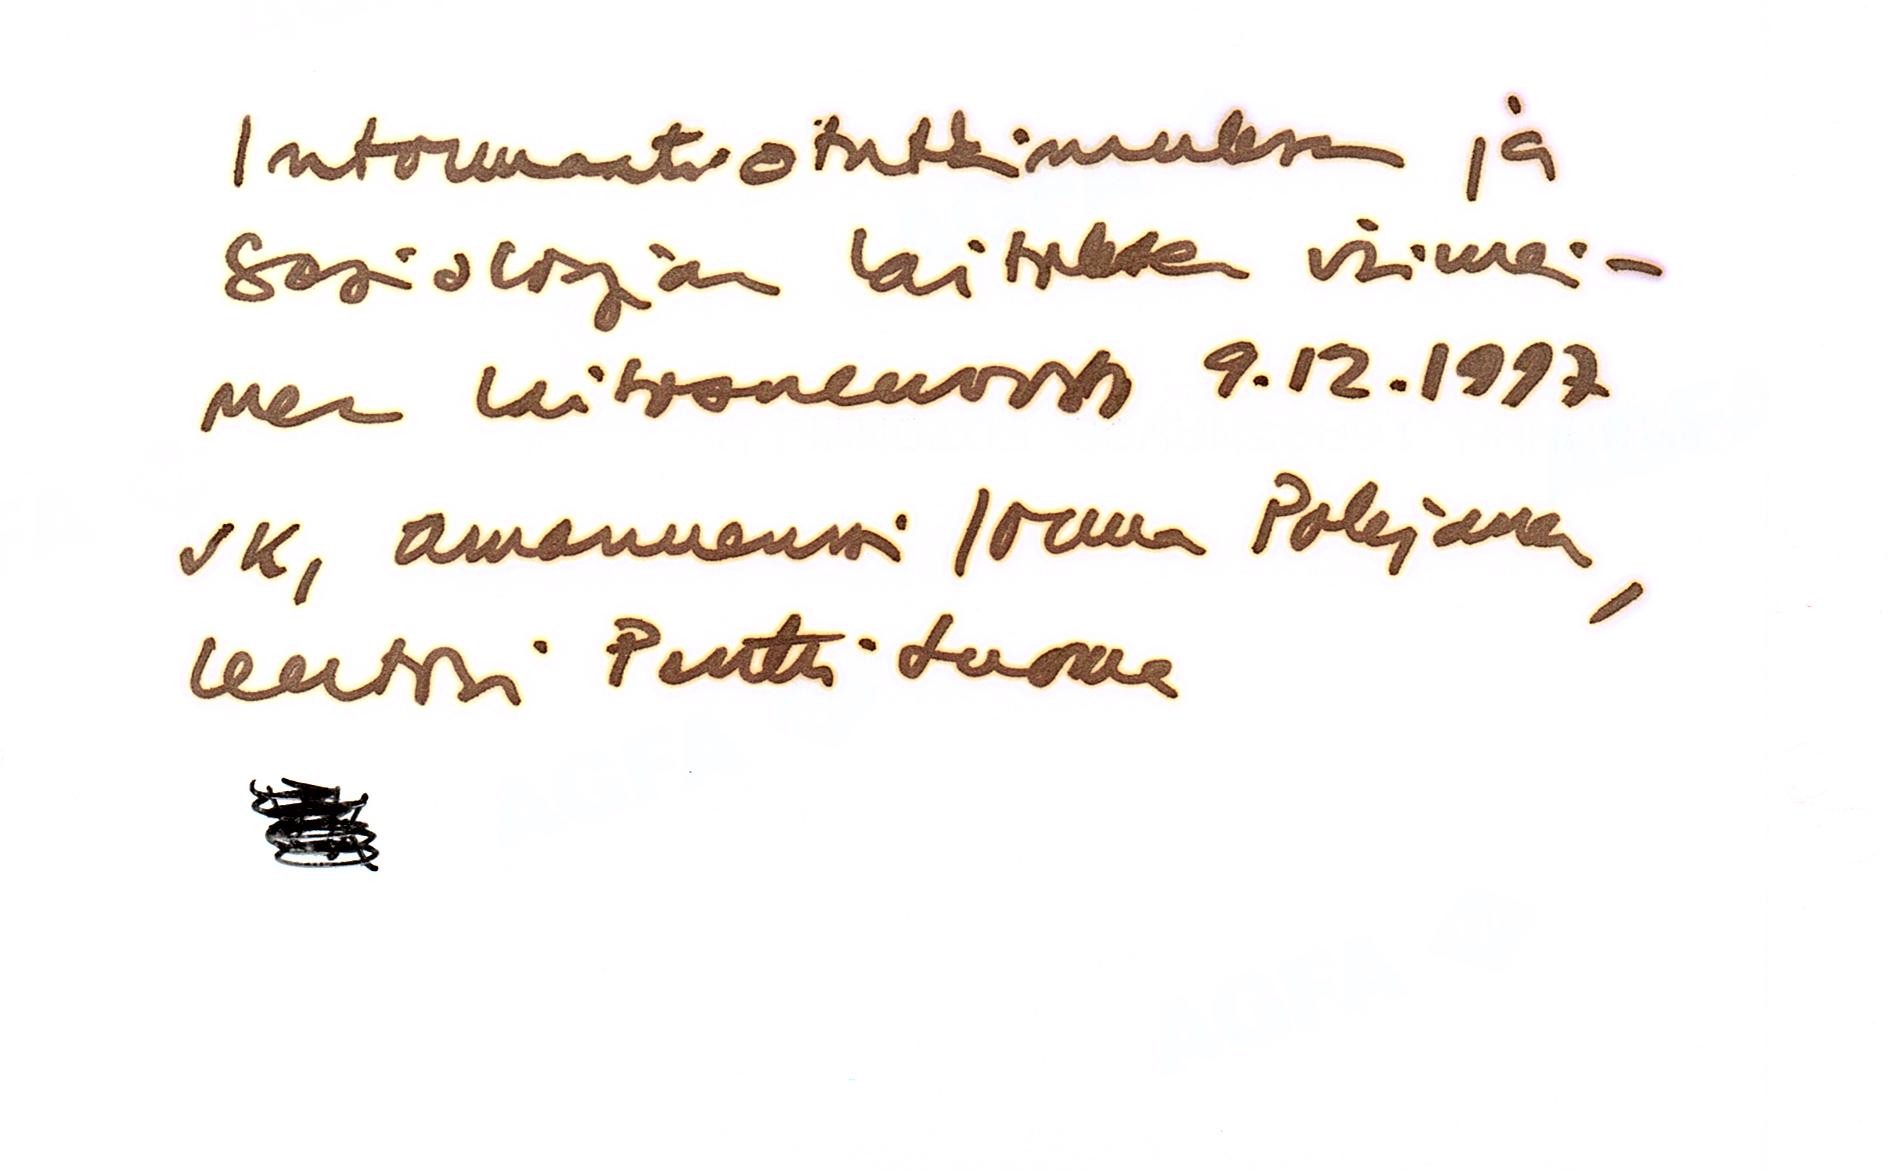 Informaatiotutkimuksen ja
Sosiologian laitoksen viimei-
nen laitosneuvosto 9.12.1997
vk, amanuenssi Jorma Pohjanen,
lehtori Pentti Luoma